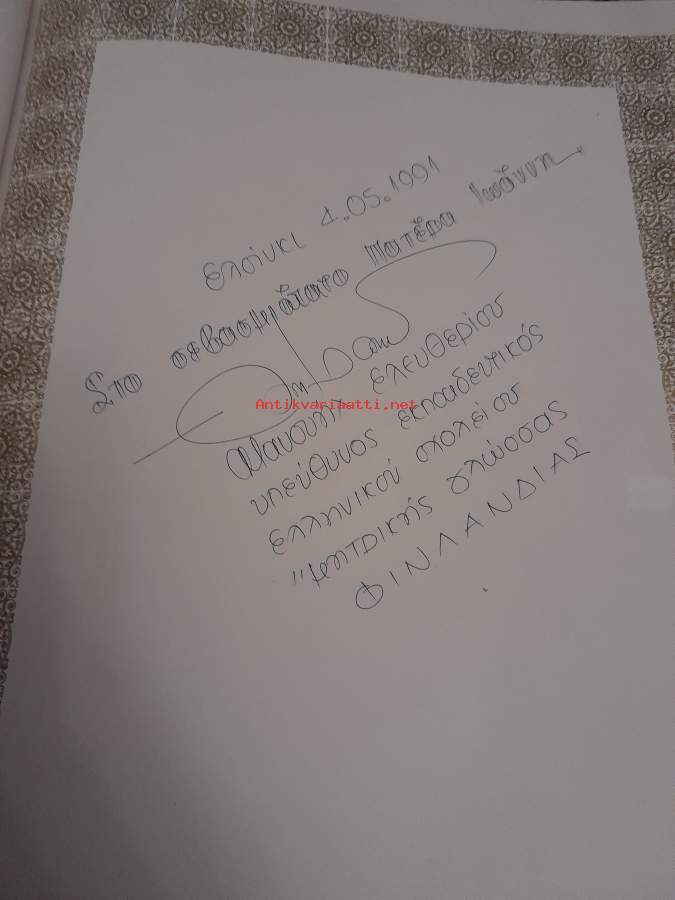 ελσίνκι 4.05.1991
Στο σεβασμιώτατο Πατέρα Ιωάννη
Antikvariaatti.net
Μανούλη ελευθερίου
υπεύθυνος εκπαιδευτικός
ελληνικού σχολείου
"μητρικής γλώσσας
ΦΙΝΛΑΝΔΙΑΣ